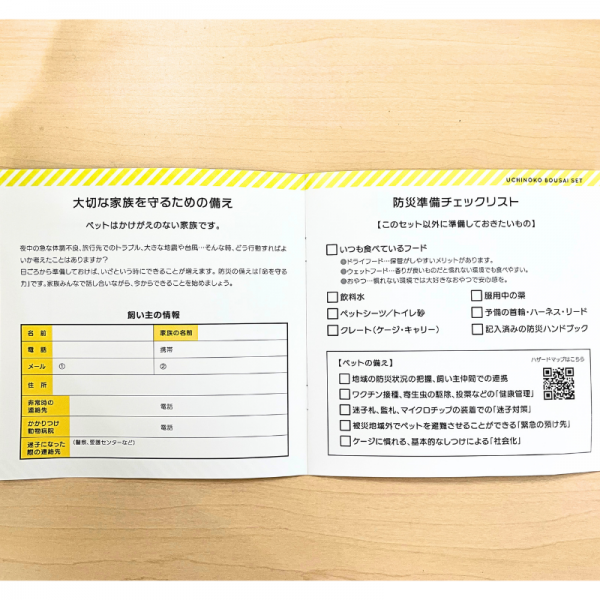 大切な家族を守るための備え
ペットはかけがえのない家族です。
夜中の急な体調不良、旅行先でのトラブル、大きな地震や台風…そんな時、どう行動すればよ
いか考えたことはありますか?
日ごろから準備しておけば、いざという時にできることが増えます。防災の備えは「命を守る
力」です。家族みんなで話し合いながら、今からできることを始めましょう。
飼い主の情報
名前 家族の名前
電話 携帯
メール ① ②
住所
非常時の
連絡先 電話
かかりつけ
動物病院 電話
迷子になった
際の連絡先 (警察、愛護センターなど)
UCHINOKO BOUSAI SET
防災準備チェックリスト
【このセット以外に準備しておきたいもの】
いつも食べているフード
●ドライフード…保管がしやすいメリットがあります。
●ウェットフード…香りが良いものだと慣れない環境でも食べやすい。
●おやつ…慣れない環境では大好きなおやつで安心感を。
飲料水 服用中の薬
ペットシーツ/トイレ砂 予備の首輪・ハーネス・リード
クレート(ケージ・キャリー) 記入済みの防災ハンドブック
【ペットの備え】 ハザードマップはこちら
地域の防災状況の把握、飼い主仲間での連携
ワクチン接種、寄生虫の駆除、投薬などの「健康管理」
迷子札、鑑札、マイクロチップの装着での「迷子対策」
被災地域外でペットを避難させることができる「緊急の預け先」
ケージに慣れる、基本的なしつけによる「社会化」